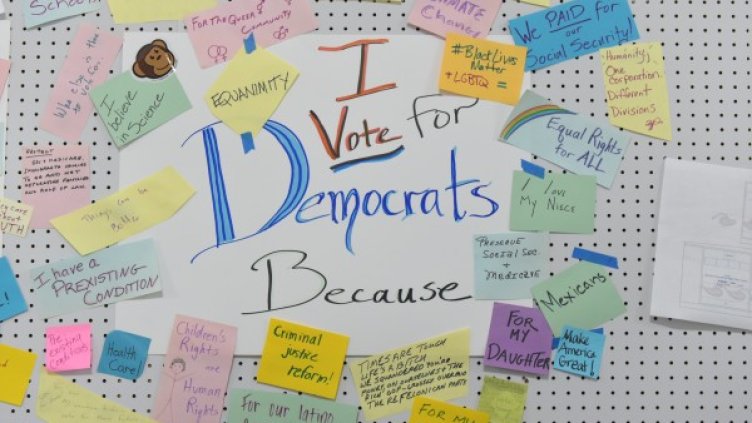 Schools
For the Queer
Community
CLIMATE
Change
We PAID for
our
Social Security!
Who else is there
to vote for..
I believe
in Science
EQUANIMITY
#BlackLives
Matter
+ LGBTQ =
Humanity!
One
corporation.
Different
Divisions
Equal Rights
for ALL
I Vote for
Democrats
Because
I love
My Niece
PRESERVE
SOCIAL SEC.
+
MEDICARE
Mexicans
Things can be
Better
I have a
PREXISTING
CONDITION
Pre existing
conditions
Health
Care!
Children's
Rights
are
Human
Rights
Criminal
justice
reform!
For our latino
TIMES ARE TOUGH
LIFE'S A BITCH
FOR MY
DAUGHTER
Make
America
Great!
FOR MY